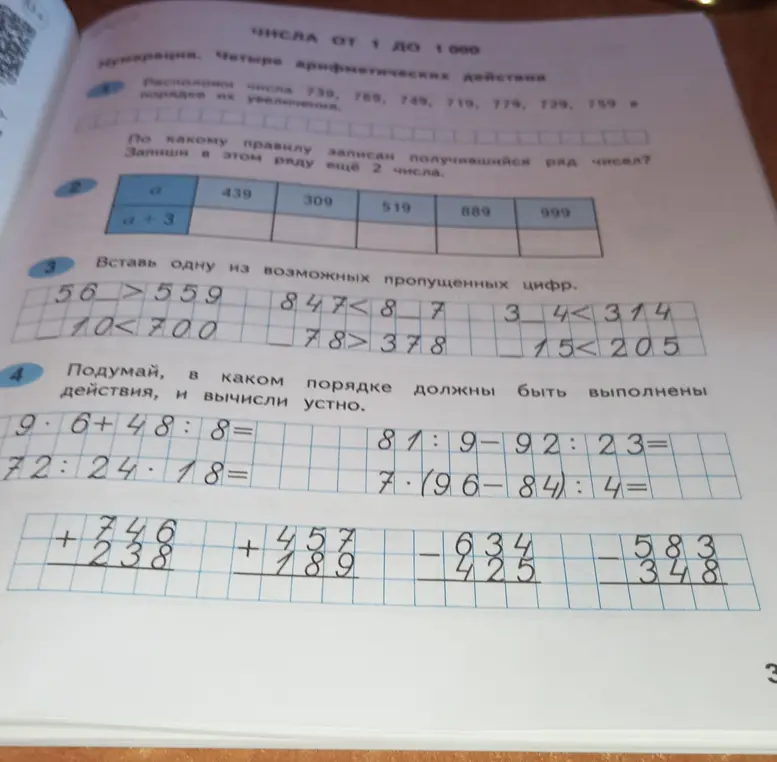 ЧИСЛА ОТ 1 ДО 1 000
Нумерация. Четыре арифметических действия
1 Расположи числа 739, 769, 749, 719, 779, 729, 759 в
порядке их увеличения.
По какому правилу записан получившийся ряд чисел?
Запиши в этом ряду ещё 2 числа.
2 a 439 309 519 889 999
a + 3
3 Вставь одну из возможных пропущенных цифр.
56_ > 559 847 < 8_7 3_4 < 314
_10 < 700 _78 > 378 _15 < 205
4 Подумай, в каком порядке должны быть выполнены
действия, и вычисли устно.
9 · 6 + 48 : 8 = 81 : 9 − 92 : 23 =
72 : 24 · 18 = 7 · (96 − 84) : 4 =
+ 746 + 457 − 634 − 583
238 189 425 348
3